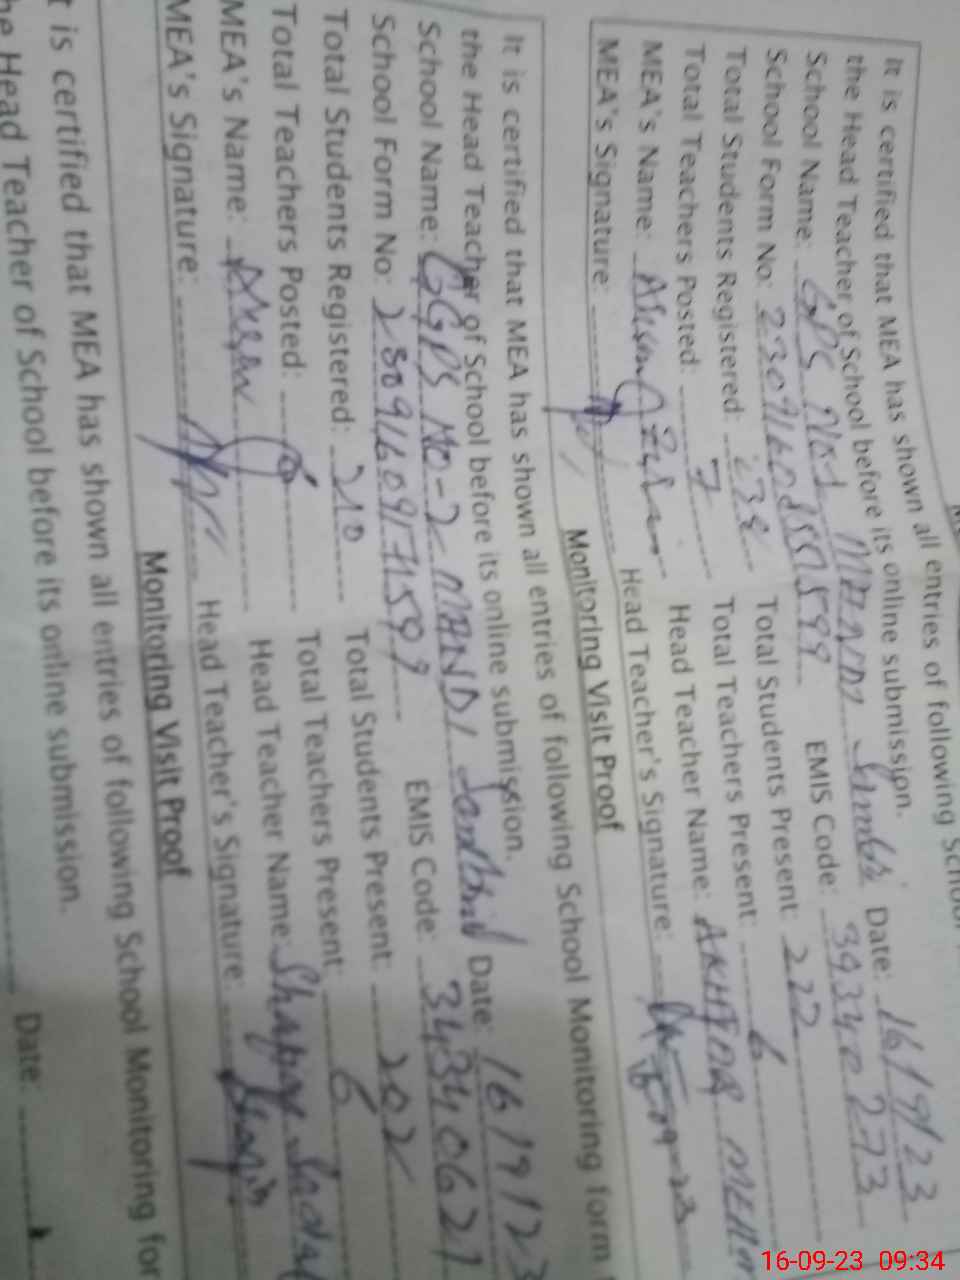 It is certified that MEA has shown all entries of following School
the Head Teacher of School before its online submission.
School Name: GPS No1 MEHNDI Date: 16/9/23
School Form No: EMIS Code:
Total Students Registered: Total Students Present: 222
Total Teachers Posted: 7 Total Teachers Present: 6
MEA's Name: Head Teacher Name: AKHTAR
MEA's Signature: Head Teacher's Signature:
Monitoring Visit Proof
It is certified that MEA has shown all entries of following School Monitoring form
the Head Teacher of School before its online submission.
School Name: GGPS No-2 MAHNDI Date: 16/9/23
School Form No: EMIS Code: 34340621
Total Students Registered: 210 Total Students Present: 202
Total Teachers Posted: 6 Total Teachers Present: 6
MEA's Name: Head Teacher Name:
MEA's Signature: Head Teacher's Signature:
Monitoring Visit Proof
t is certified that MEA has shown all entries of following School Monitoring for
he Head Teacher of School before its online submission.
Date:
16-09-23 09:34